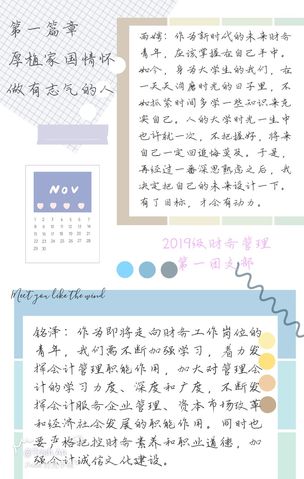 第一篇章
厚植家国情怀
做有志气的人
雨婷：作为新时代的未来财务
青年，应该掌握在自己手中。
如今，身为大学生的我们，在
一天天消磨时光的日子里，不
如抓紧时间多学一些知识来充
实自己。人的大学时光一生中
也许就一次，不把握好，将来
自己一定回追悔莫及。于是，
再经过一番深思熟虑之后，我
决定把自己的未来设计一下。
有了目标，才会有动力。
Nov
2019级财务管理
第一团支部
Meet you like the wind
铭泽：作为即将走向财务工作岗位的
青年，我们需不断加强学习，着力发
挥会计管理职能作用，加大对管理会
计的学习力度、深度和广度，不断发
挥会计服务企业管理、资本市场改革
和经济社会发展的职能作用。同时也
要严格把控财务素养和职业道德，加
强会计诚信文化建设。